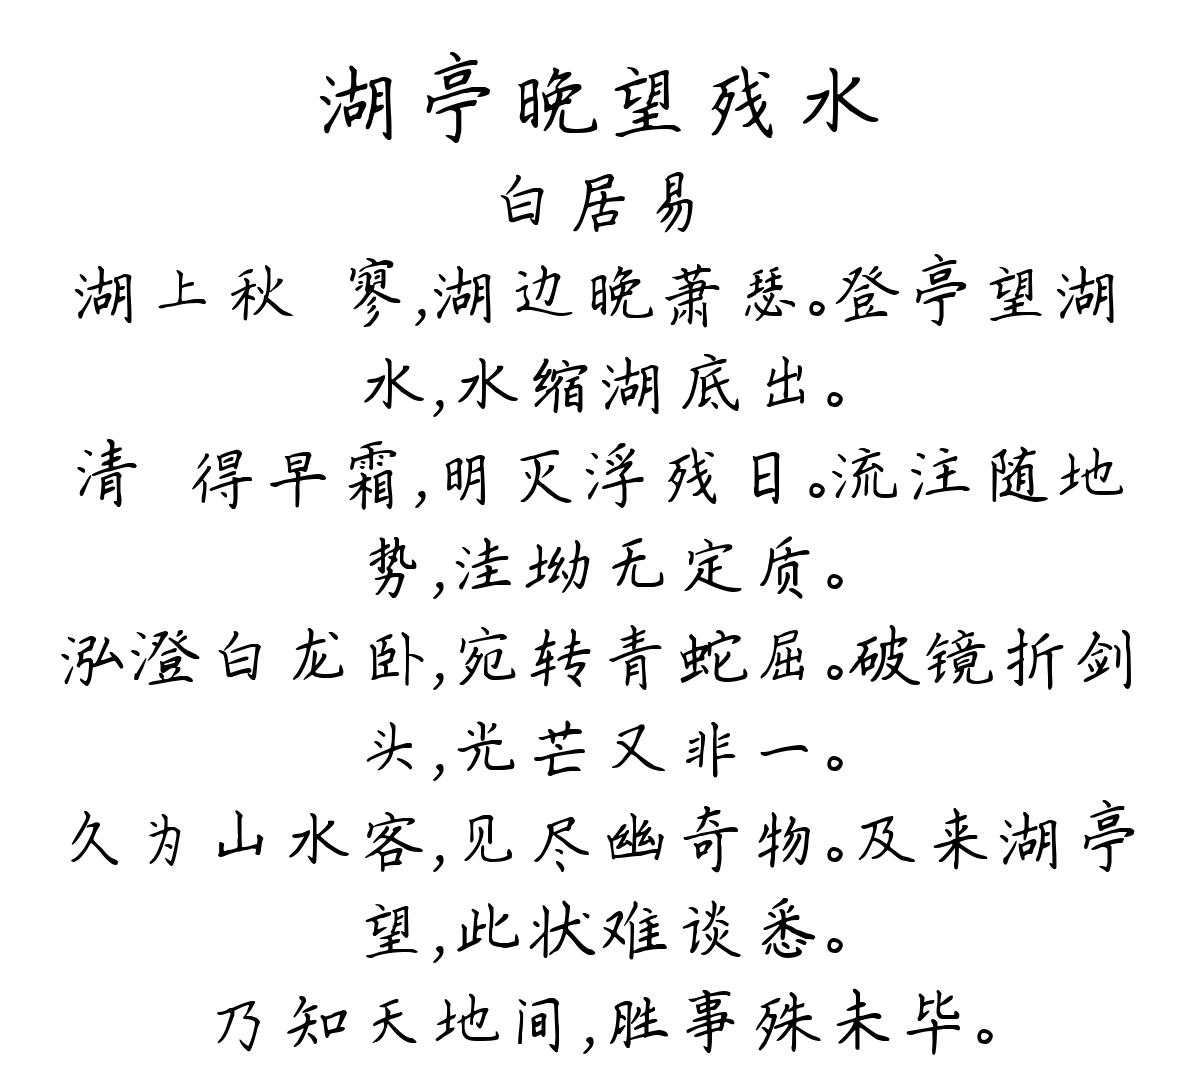 湖亭晚望残水
白居易
湖上秋 寥,湖边晚萧瑟。登亭望湖
水,水缩湖底出。
清 得早霜,明灭浮残日。流注随地
势,洼坳无定质。
泓澄白龙卧,宛转青蛇屈。破镜折剑
头,光芒又非一。
久为山水客,见尽幽奇物。及来湖亭
望,此状难谈悉。
乃知天地间,胜事殊未毕。